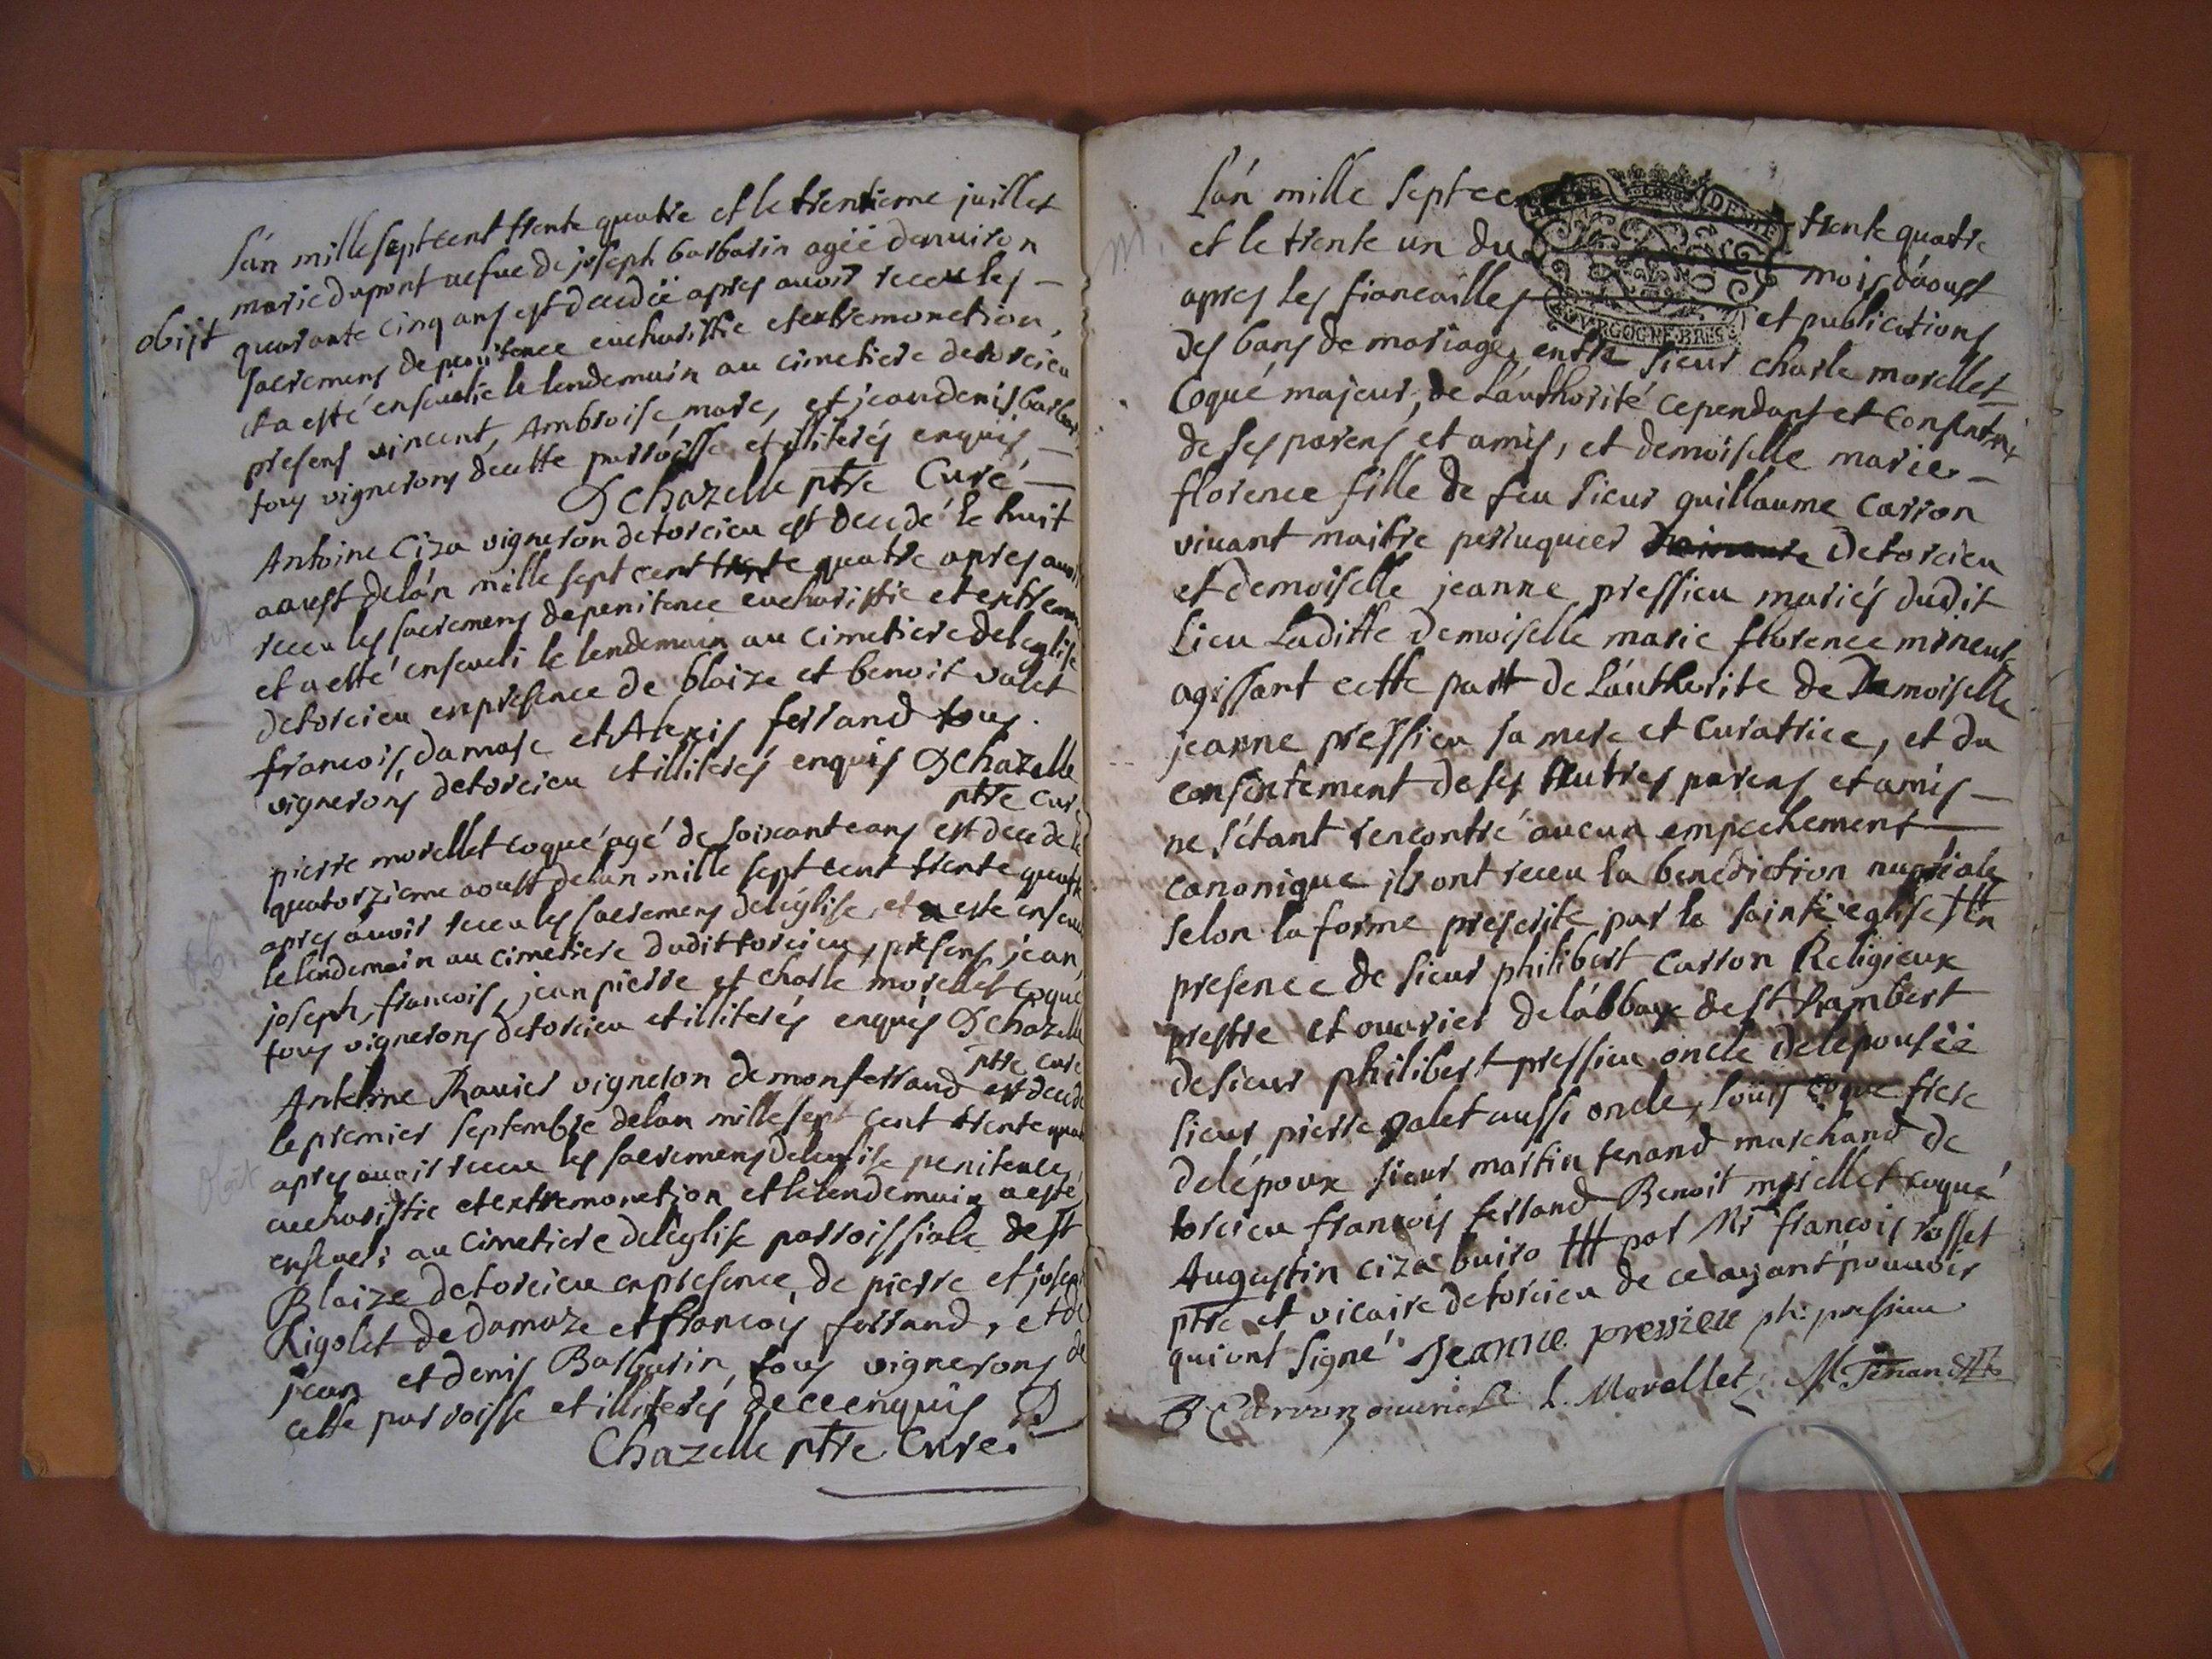 l'an mille sept cent trente quatre et le trentieme juillet
marie dupont vefue de joseph barbarin agéé denuiron
obijt quarante cinq ans est decedéé apres auoir receu les
sacremens de penitence eucharistie et extremonction,
et a esté enseuelie le lendemain au cimetiere de torcieu
presens vincent, Ambroise, marc, et jean denis barbarin
tous vignerons de cette parroisse et illiterés enquis
D chazelle ptre Curé
Antoine Ciza vigneron de torcieu est decedé le huit
aoust de lán mille sept cent trente quatre apres auoir
receu les sacremens de penitence eucharistie et extremo
et a esté enseueli le lendemain au cimetiere de leglise
de torcieu en presence de blaize et benoit valet
francois, damase et Alexis ferrand tous
vignerons de torcieu et illiterés enquis D Chazelle
ptre curé
pierre morellet coqué agé de soixante ans est decedé le
quatorzieme aoust de lan mille sept cent trente quatre
apres auoir receu les sacremens de léglise, et a esté enseueli
le lendemain au cimetiere dudit torcieu, presens, jean,
joseph, francois, jean pierre et charle morellet coqué
tous vignerons de torcieu et illiterés enquis D Chazelle
ptre curé
Antelme Rauier vigneron de montferrand est decedé
le premier septembre de lan mille sept cent trente quatre
obit apres auoir receu les sacremens de leglise penitence,
eucharistie et extremonction et le lendemain a esté
enseueli au cimetiere de léglise parroissiale de st
Blaize de torcieu en presence, de pierre et joseph
Rigolet de damaze et francois ferrand, et de
jean et denis Barbarin, tous vignerons de
cette parroisse et illiterés de ce enquis D
Chazelle ptre Curé.
l'án mille sept cent trente quatre
et le trente un du mois d'aoust
apres les fiancailles et publications
des bans de mariage, entre sieur charle morellet
Coqué majeur, de l'authorité cependant et consentmt
de ses parens et amis, et demoiselle marie
florence fille de feu sieur guillaume carron
viuant maitre perruquier de torcieu
et demoiselle jeanne pressieu mariés dudit
lieu Laditte demoiselle marie florence mineure
agissant cette part de l'authorite de Demoiselle
jeanne pressieu sa mere et curatrice, et du
consentement de ses autres parens et amis
ne s'étant rencontré aucun empechement
canonique ils ont receu la benediction nuptiale
selon la forme prescrite par la sainte eglise ttt en
presence de sieur philibert carron Religieux
prestre et ouurier de lábbaye de st Rambert
de sieur philibert pressieu oncle de lépouséé
sieur pierre valet aussi oncle, loüis coqué frere
de lépoux sieur martin tenand marchand de
torcieu francois ferrand Benoit morellet coqué
Augustin ciza buiro ttt par Mr francois rosset
ptre et vicaire de torcieu de ce ayant pouuoir
qui ont signé Jeanne pressieu ph: pressieu
Carron ouurier L. Morellet M Tenand